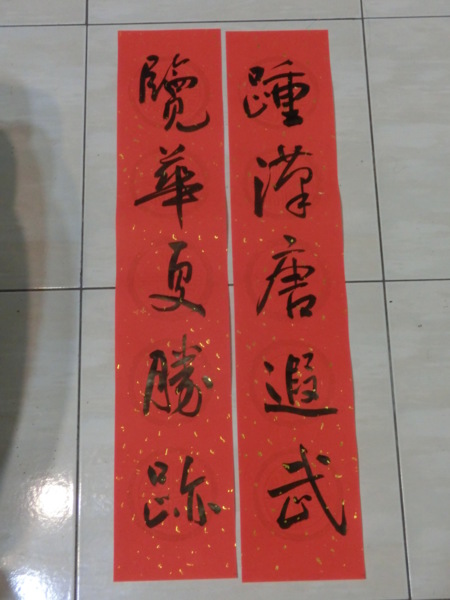 踵漢唐遐武
覽華夏勝跡